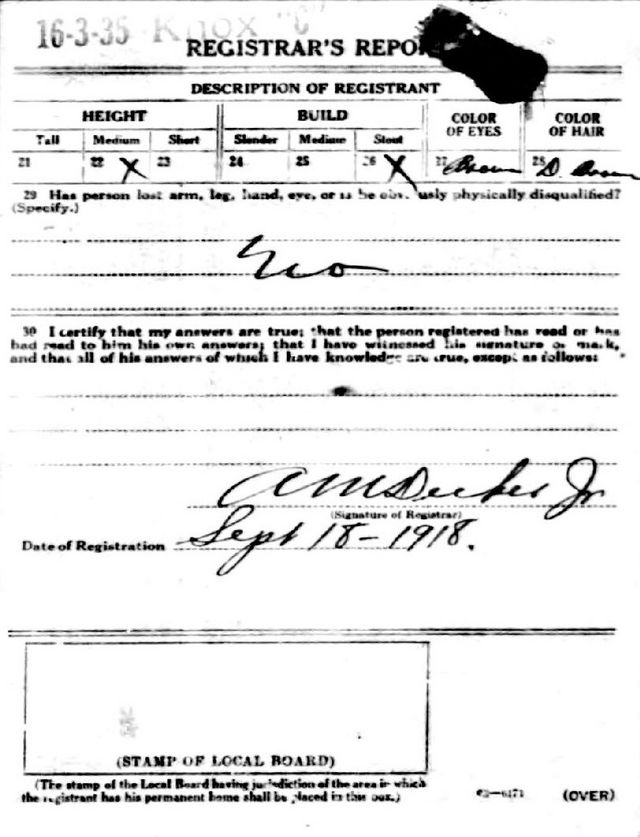 16-3-35 Knox "C"
REGISTRAR'S REPOR
DESCRIPTION OF REGISTRANT
HEIGHT BUILD COLOR OF EYES COLOR OF HAIR
Tall Medium Short Slender Medium Stout
21 22 X 23 24 25 26 X 27 Brown 28 D. Brown
29 Has person lost arm, leg, hand, eye, or is he obv. usly physically disqualified?
(Specify.)
No
30 I certify that my answers are true; that the person registered has read or has
had read to him his own answers; that I have witnessed his signature or mark,
and that all of his answers of which I have knowledge are true, except as follows:
A M Decker Jr
(Signature of Registrar)
Date of Registration Sept 18-1918.
(STAMP OF LOCAL BOARD)
(The stamp of the Local Board having jurisdiction of the area in which
the registrant has his permanent home shall be placed in this box.)
03-6171 (OVER)